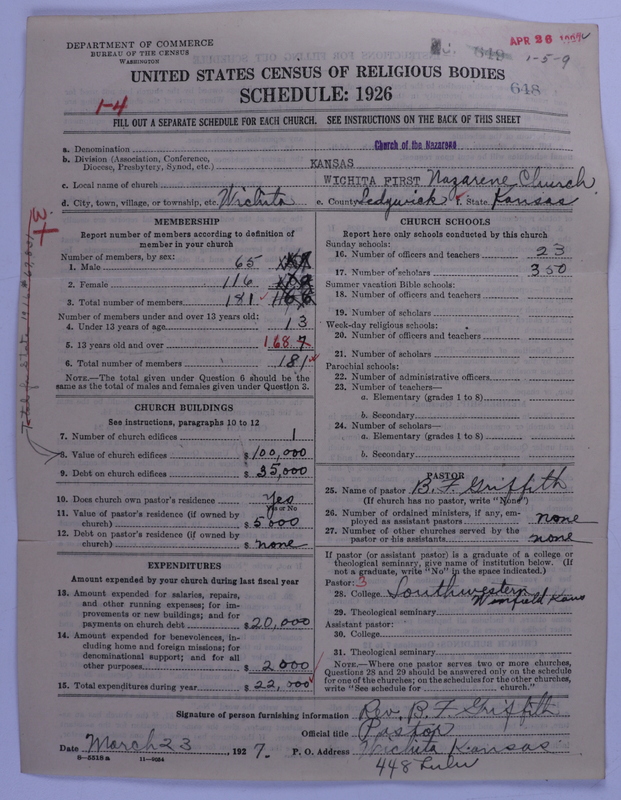 DEPARTMENT OF COMMERCE
BUREAU OF THE CENSUS
WASHINGTON
849
APR 26
1-5-9
648
UNITED STATES CENSUS OF RELIGIOUS BODIES
SCHEDULE: 1926
1-4
FILL OUT A SEPARATE SCHEDULE FOR EACH CHURCH. SEE INSTRUCTIONS ON THE BACK OF THIS SHEET
a. Denomination Church of the Nazarene
b. Division (Association, Conference, Diocese, Presbytery, Synod, etc.) KANSAS
c. Local name of church WICHITA FIRST Nazarene Church
d. City, town, village, or township, etc. Wichita e. County Sedgwick f. State Kansas
MEMBERSHIP
Report number of members according to definition of
member in your church
Number of members, by sex:
1. Male 65
2. Female 116
3. Total number of members 181
Number of members under and over 13 years old:
4. Under 13 years of age 13
5. 13 years old and over 168
6. Total number of members 181
NOTE.—The total given under Question 6 should be the
same as the total of males and females given under Question 3.
CHURCH BUILDINGS
See instructions, paragraphs 10 to 12
7. Number of church edifices 1
8. Value of church edifices $ 100,000
9. Debt on church edifices $ 35,000
10. Does church own pastor's residence Yes
Yes or No
11. Value of pastor's residence (if owned by
church) $ 5000
12. Debt on pastor's residence (if owned by
church) $ none
EXPENDITURES
Amount expended by your church during last fiscal year
13. Amount expended for salaries, repairs,
and other running expenses; for im-
provements or new buildings; and for
payments on church debt $ 20,000
14. Amount expended for benevolences, in-
cluding home and foreign missions; for
denominational support; and for all
other purposes $ 2000
15. Total expenditures during year $ 22,000
CHURCH SCHOOLS
Report here only schools conducted by this church
Sunday schools:
16. Number of officers and teachers 23
17. Number of scholars 350
Summer vacation Bible schools:
18. Number of officers and teachers
19. Number of scholars
Week-day religious schools:
20. Number of officers and teachers
21. Number of scholars
Parochial schools:
22. Number of administrative officers
23. Number of teachers—
a. Elementary (grades 1 to 8)
b. Secondary
24. Number of scholars—
a. Elementary (grades 1 to 8)
b. Secondary
PASTOR
25. Name of pastor B. F. Griffith
(If church has no pastor, write "None")
26. Number of ordained ministers, if any, em-
ployed as assistant pastors none
27. Number of other churches served by the
pastor or his assistants none
If pastor (or assistant pastor) is a graduate of a college or
theological seminary, give name of institution below. (If
not a graduate, write "No" in the space indicated.)
Pastor: 3
28. College Southwestern Winfield Kans
29. Theological seminary
Assistant pastor:
30. College
31. Theological seminary
NOTE.—Where one pastor serves two or more churches,
Questions 28 and 29 should be answered only on the schedule
for one of the churches; on the schedules for the other churches,
write "See schedule for church."
Signature of person furnishing information Rev. B. F. Griffith
Official title Pastor
Date March 23, 1927. P. O. Address Wichita Kansas
8—5518a 11—9054 448 Lulu